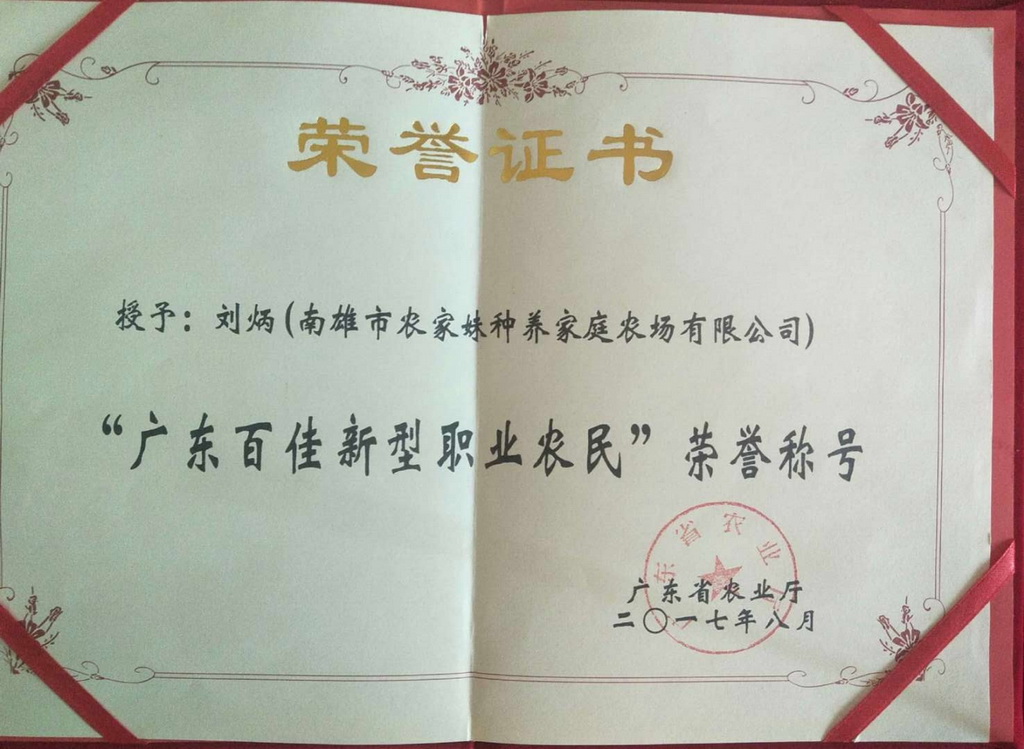 荣誉证书
授予：刘炳(南雄市农家妹种养家庭农场有限公司)
“广东百佳新型职业农民”荣誉称号
东省农业
广东省农业厅
二〇一七年八月